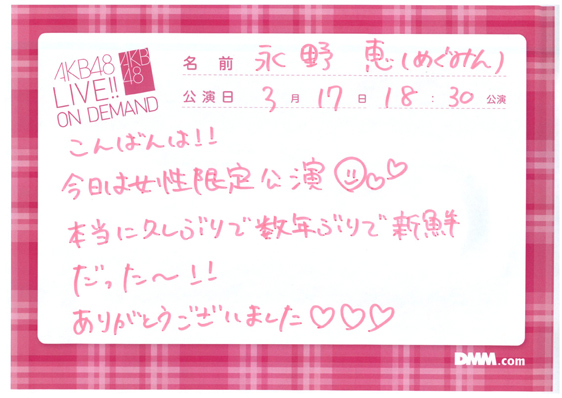 AKB48
LIVE!!
ON DEMAND
AKB
48
名前 永野 恵(めぐみん)
公演日 3月17日 18:30公演
こんばんは!!
今日は女性限定公演
本当に久しぶりで数年ぶりで新鮮
だった〜!!
ありがとうございました♡♡♡
DMM.com